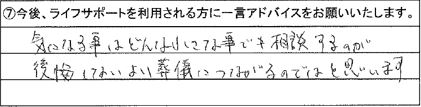 ⑦今後、ライフサポートを利用される方に一言アドバイスをお願いいたします。
気になる事はどんな小さな事でも相談するのが
後悔しないより葬儀につながるのではと思います